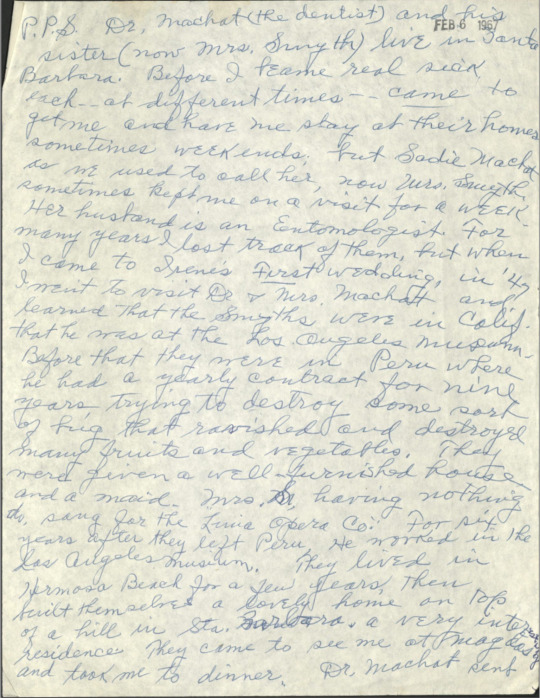 P.P.S. Dr. Machat (the dentist) and his
FEB 6 1967
sister (now Mrs. Smyth) live in Santa
Barbara. Before I became real sick,
each -- at different times -- came to
get me and have me stay at their homes
sometimes weekends. but Sadie Machat
as we used to call her, now Mrs. Smyth
sometimes kept me on a visit for a week.
Her husband is an Entomologist. For
many years I lost track of them, but when
I came to Irene's First wedding, in '47
I went to visit Dr & Mrs. Machatt and
learned that the Smyths were in Calif.
that he was at the Los Angeles Museum.
Before that they were in Peru where
he had a yearly contract for nine
years, trying to destroy some sort
of bug that ravished and destroyed
many fruits and vegetables. They
were given a well-furnished house
and a maid. Mrs. having nothing
do, sang for the Lima Opera Co. For six
years after they left Peru, He worked in the
Los Angeles Museum. They lived in
Hermosa Beach for a few years, then
built themselves a lovely home on top
of a hill in Sta. Barbara. a very
residence. They came to see me at
and took me to dinner. Dr. Machat sent